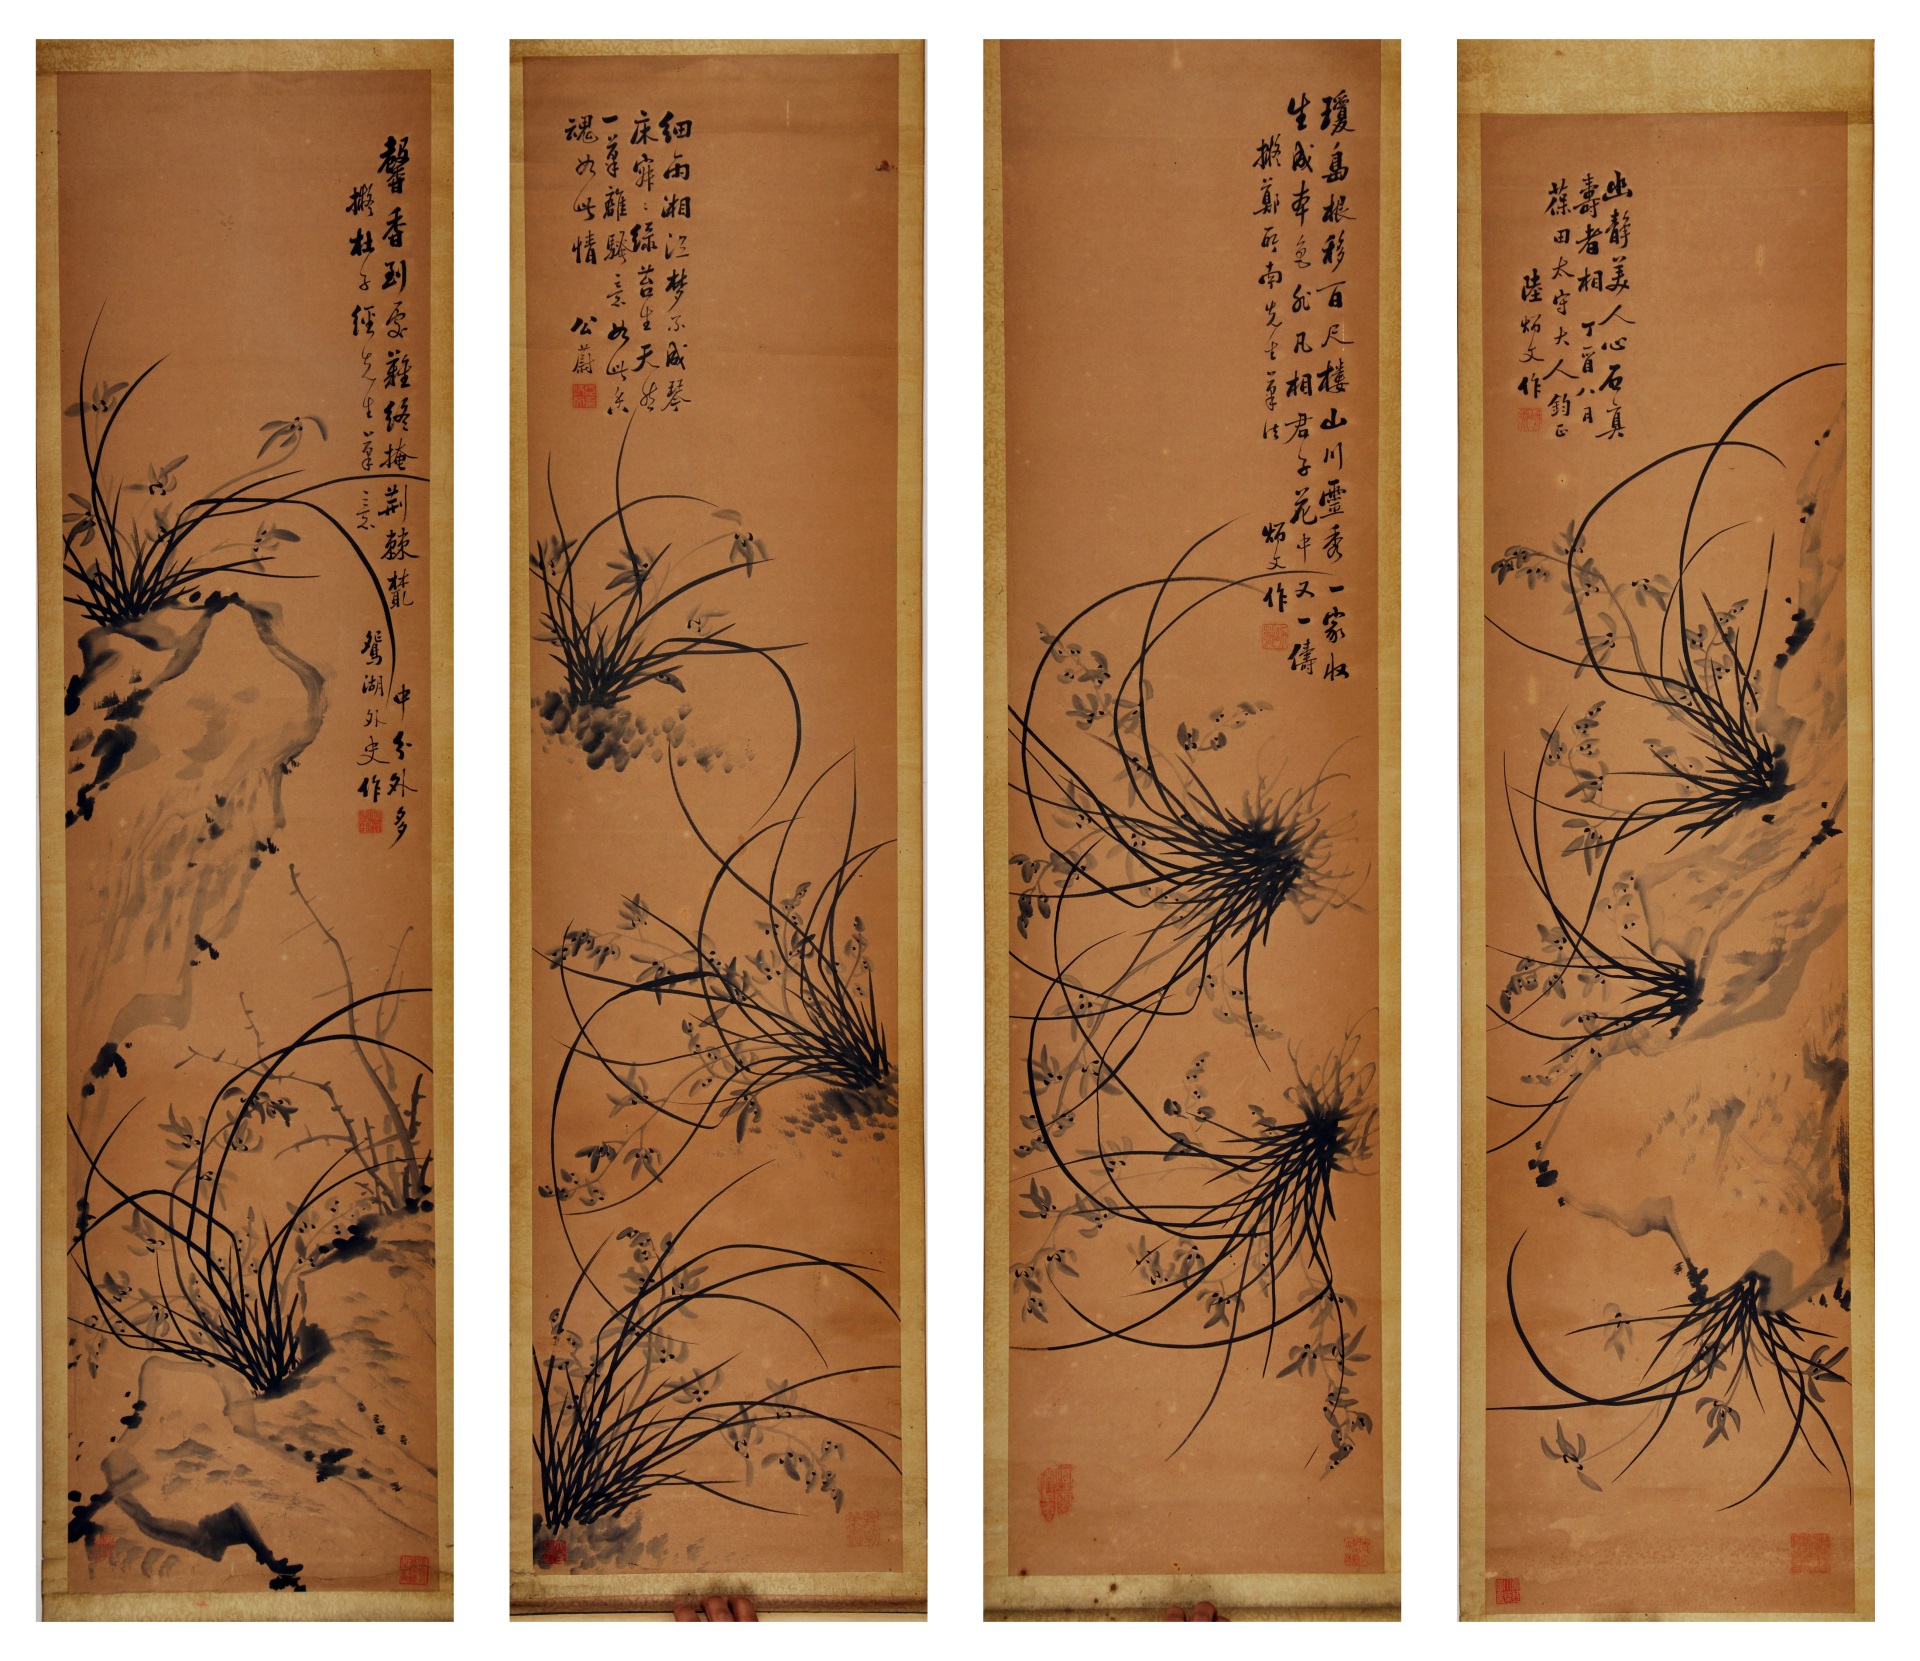 幽靜美人心石真
壽者相 丁酉八月
葆田太守大人鈞正
陸炳文作
瓊島根移百尺樓山川靈秀一家收
生成本色非凡相君子花中又一儔
擬鄭所南先生筆法
炳文作
細雨湘江夢不成琴
床寂〻綠苔生天然
一筆離騷意如此香
魂如此情 公蔚
馨香到處難終掩荊棘叢中分外多
擬杜子經先生筆意 鴛湖外史作